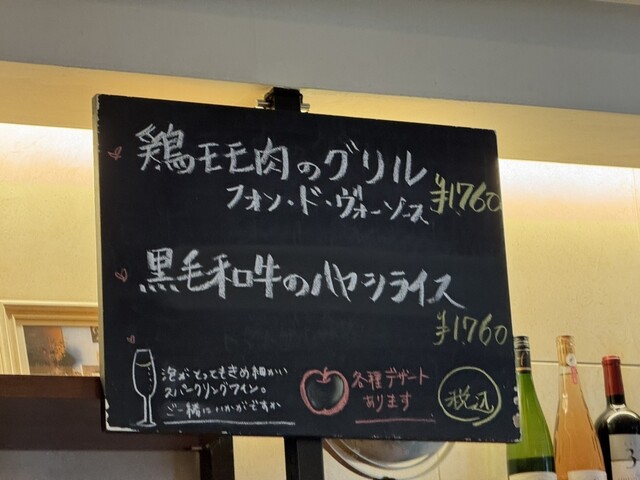 鶏モモ肉のグリル
フォン・ド・ヴォーソース ¥1.760
黒毛和牛のハヤシライス
¥1.760
泡がとってもきめ細かい
スパークリングワイン。
ご一緒にいかがですか
各種デザート
あります
税込
3